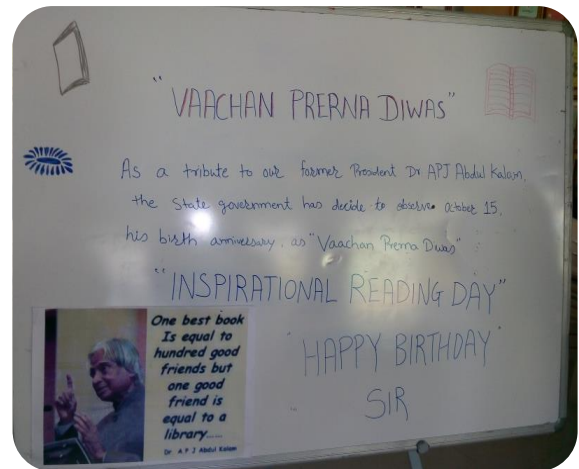 "VAACHAN PRERNA DIWAS"
As a tribute to our former President Dr APJ Abdul Kalam,
the State government has decide to observe October 15,
his birth anniversary, as "Vaachan Prerna Diwas"
"INSPIRATIONAL READING DAY"
HAPPY BIRTHDAY
SIR
One best book
Is equal to
hundred good
friends but
one good
friend is
equal to a
library.....
Dr A P J Abdul Kalam